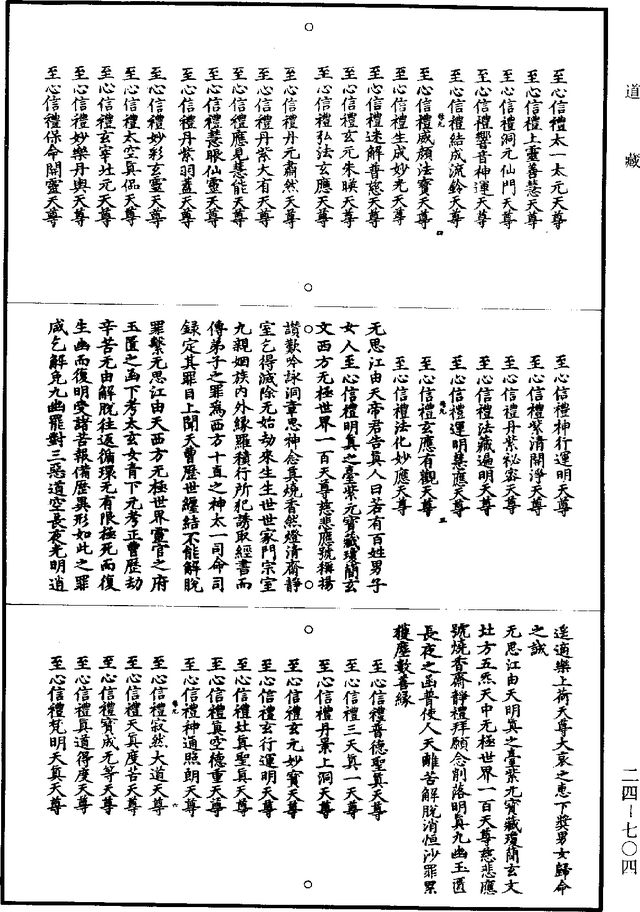 道藏
至心信禮太一太元天尊
至心信禮上靈善慧天尊
至心信禮洞元仙門天尊
至心信禮響音神運天尊
至心信禮結成流鈴天尊
四
至心信禮威顏法寶天尊
至心信禮生成妙光天尊
至心信禮速解普慈天尊
至心信禮玄元朱暎天尊
至心信禮弘法玄應天尊
至心信禮丹元肅然天尊
至心信禮丹紫大有天尊
至心信禮應見慧能天尊
至心信禮慧眼仙靈天尊
至心信禮丹紫羽蓋天尊
至心信禮妙彩玄靈天尊
至心信禮太空真仙天尊
至心信禮玄宰灶元天尊
至心信禮妙樂丹輿天尊
至心信禮保命開靈天尊
至心信禮神行運明天尊
至心信禮紫清開淨天尊
至心信禮丹紫祕容天尊
至心信禮法藏遍明天尊
至心信禮運明慧應天尊
五
至心信禮玄應有觀天尊
至心信禮法化妙應天尊
无思江由天帝君告真人曰若有百姓男子
女人至心信禮明真之臺紫元寶藏瓊蕳玄
文西方无極世界一百天尊慈悲應號稱揚
讚歎吟詠洞章思神念真燒香然燈清齋靜
室乞得滅除无始劫來生生世世家門宗室
九親姻族內外緣羅積行所犯誘取經書而
傳弟子之罪為西方十直之神太一司命司
録定其罪目上聞天曹歷世纏結不能解脫
罪繫无思江由天西方无極世界靈官之府
玉匱之函下考太玄女青下元考正曹歷劫
辛苦无由解脫往返循環元有限極死而復
生幽而復明受諸苦報備歷異形如此之罪
咸乞解免九幽罷對三惡道空長夜光明逍
遥適樂上荷天尊大哀之惠下獎男女歸命
之誠
无思江由天明真之臺紫元寶藏瓊蕳玄文
灶方五炁天中无極世界一百天尊慈悲應
號燒香齋靜禮拜願念削落明真九幽玉匱
長夜之函普使人天離苦解脫消恒沙罪累
獲塵數善緣
至心信禮普德聖真天尊
至心信禮三天真一天尊
至心信禮丹紫上洞天尊
至心信禮玄元妙寶天尊
至心信禮玄行運明天尊
至心信禮灶真聖真天尊
至心信禮真空德重天尊
至心信禮神通照朗天尊
六
至心信禮寂然大道天尊
至心信禮天真度苦天尊
至心信禮寶成元等天尊
至心信禮真道得度天尊
至心信禮梵明天真天尊
二四－七〇四